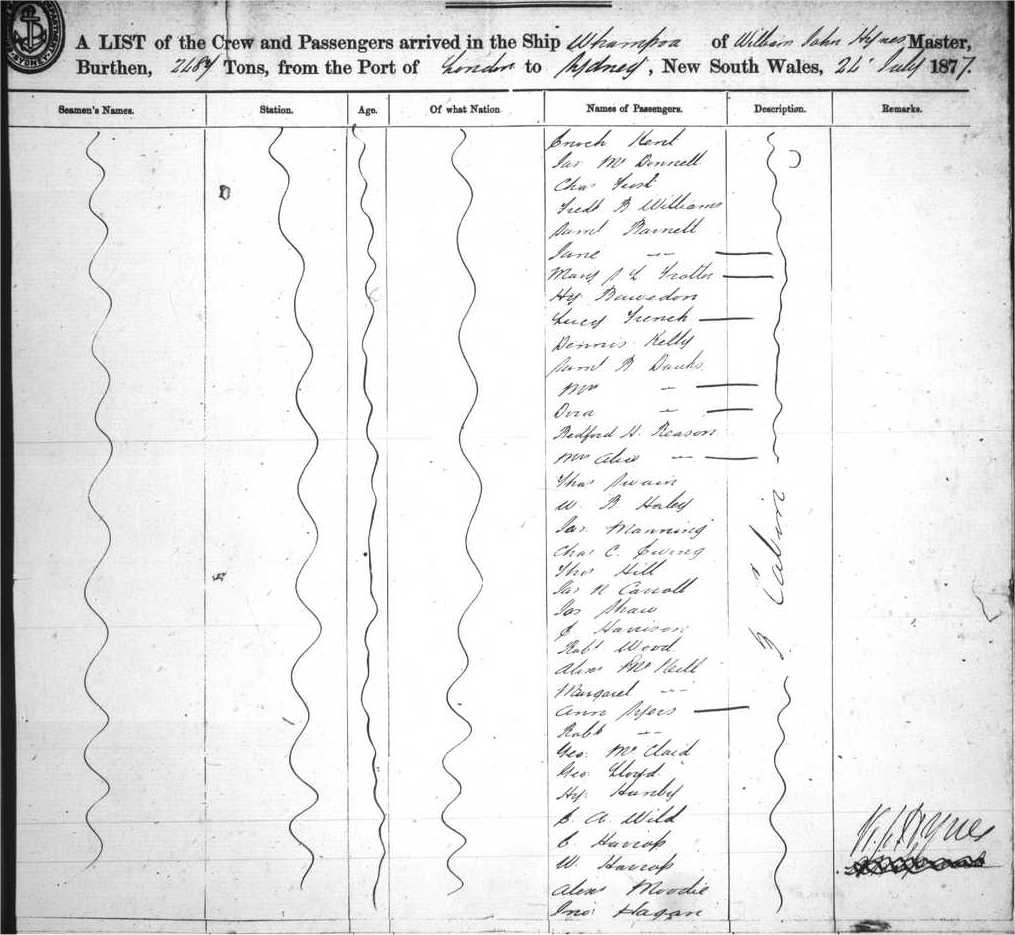 SYDNEY
A LIST of the Crew and Passengers arrived in the Ship Whampoa of William John Hynes Master,
Burthen, Tons, from the Port of London to Sydney, New South Wales, July 1877.
Seamen's Names. Station. Age. Of what Nation Names of Passengers. Description. Remarks.
Enoch Kent
Jas Mc Donnell
Chas
Fredk B Williams
Saml Barnett
Jane -- —
Mary Trotter —
Hy
Lucy French —
Dennis Kelly
Saml B
Mrs - —
Dora - —
Redford H. Reason
Mrs Alice -- —
Thos Swain
W. B Haley
Jas. Manning
Chas C. Ewing
Thos Hill
Jas N Carroll
Jas Shaw
Harrison
Robt Wood
Alexr Mc Neill
Margaret ---
Ann Myers —
Robt --
Geo. Mc
Geo. Lloyd
Hy.
A. Wild
Harrop
W. Harrop
Alexr Moodie
Jno. Hagan
Cabin
Hynes